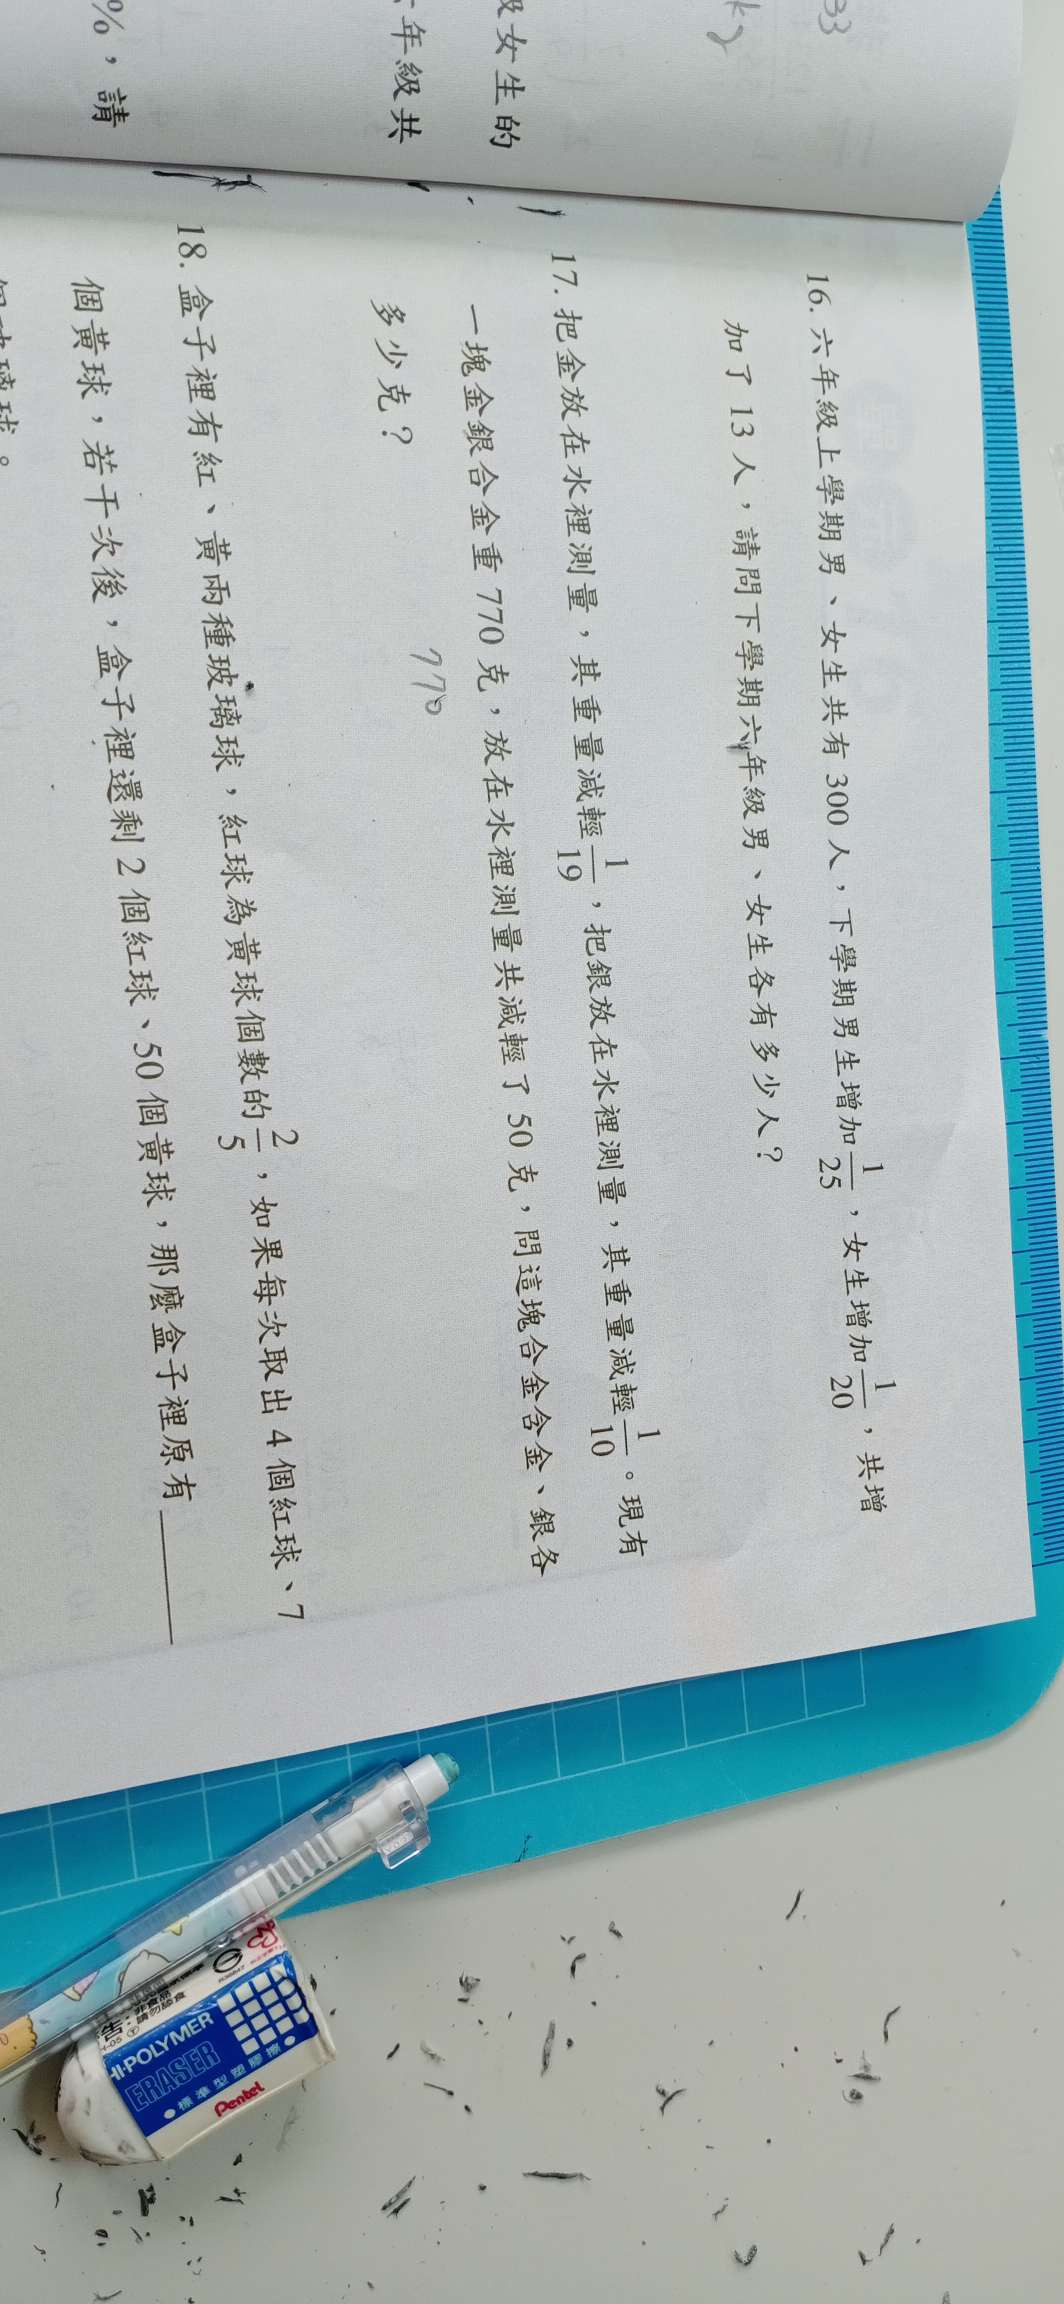 33
級女生的
年級共
%，請
16. 六年級上學期男、女生共有 300 人，下學期男生增加 1/25，女生增加 1/20，共增
加了 13 人，請問下學期六年級男、女生各有多少人？
17. 把金放在水裡測量，其重量減輕 1/19，把銀放在水裡測量，其重量減輕 1/10。現有
一塊金銀合金重 770 克，放在水裡測量共減輕了 50 克，問這塊合金含金、銀各
多少克？
770
18. 盒子裡有紅、黃兩種玻璃球，紅球為黃球個數的 2/5，如果每次取出 4 個紅球、7
個黃球，若干次後，盒子裡還剩 2 個紅球、50 個黃球，那麼盒子裡原有______
個玻璃球。
HI-POLYMER
ERASER
標準型塑膠擦
Pentel
非食品
請勿舔食